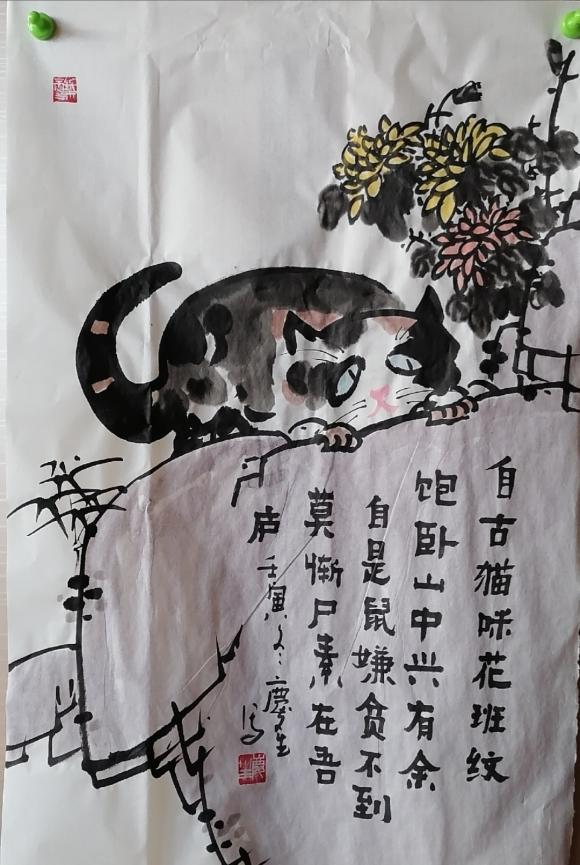 自古猫咪花班纹
饱卧山中兴有余
自是鼠嫌贫不到
莫惭尸素在吾
庐
壬寅冬慶生